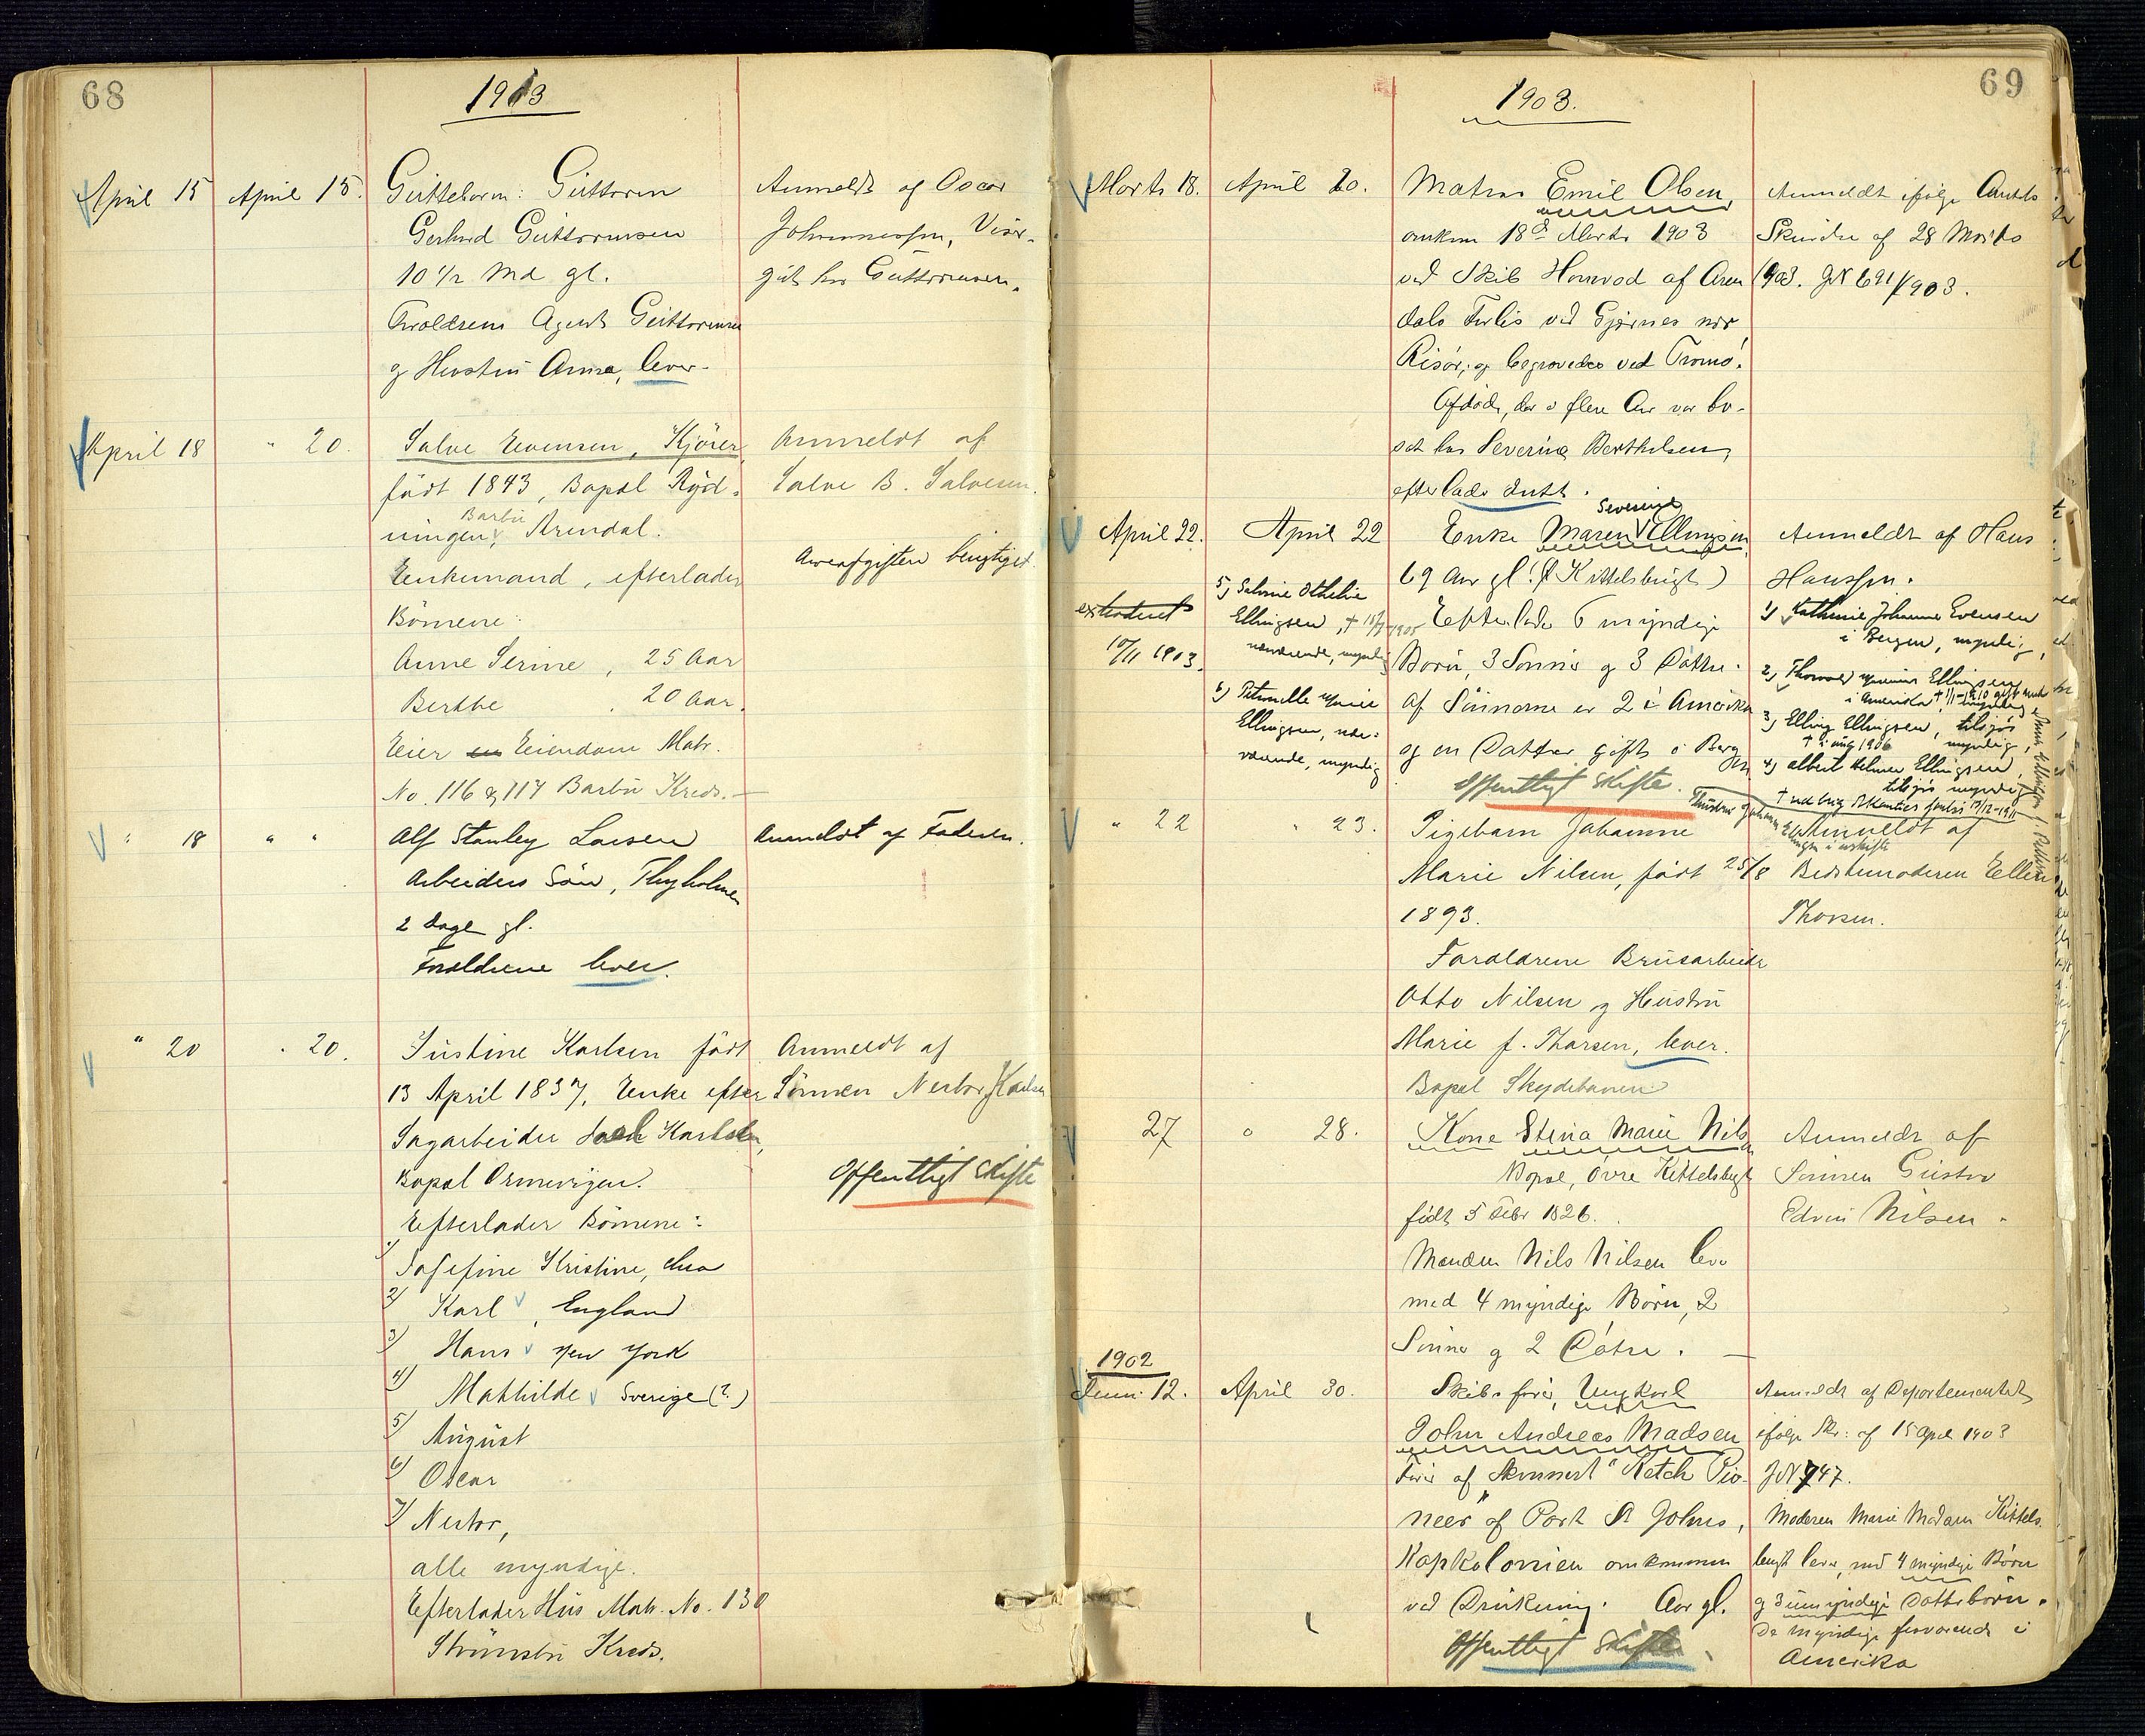 68
1903
April 15 April 15. Guttebarn: Guttorm Anmeldt af Oscar
Gerhard Guttormsen Johannessen, Visér-
10 1/2 Md gl. gut hos Guttormsen.
Forældrene Agent Guttormsen
og Hustru Anna, lever.
April 18 " 20. Salve Evensen, Kjörer Anmeldt af
födt 1843, Bopæl Ryd- Salve B. Salvesen.
Barbu
ningen, Arendal.
Enkemand, efterlader Arveafgiften berigtiget.
Börnene:
Anne Serine, 25 Aar
Berthe 20 Aar.
Eier Eiendom Matr.
No. 116 & 117 Barbu Kreds.
" 18 " " Alf Stanley Larsen Anmeldt af Faderen.
Arbeiders Sön, Thyholmen
2 Dage gl.
Forældrene lever.
" 20 " 20. Justine Karlsen födt Anmeldt af
13 April 1837, Enke efter Sönnen Nestor Karlsen
Sagarbeider Karlsen,
Bopæl Ormevigen. Offentligt Skifte
Efterlader Börnene:
1) Josefine Kristine,
2) Karl, England
3) Hans New York
4) Mathilde Sverige (?)
5) August
6) Oscar
7) Nestor,
alle myndige.
Efterlader Hus Matr. No. 130
Strömsbu Kreds.
69
1903.
Marts 18. April 20. Matros Emil Olsen, Anmeldt ifølge Amtets
omkom 18de Marts 1903 Skrivelse af 28 Marts
ved Skib Homvod af Aren 1903. JN 691/1903.
dals Forlis ved Gjernes nær
Risör, og begravedes ved Tromö.
Afdöde, der i flere Aar var bo-
sat hos Severine Berthelsen,
efterlader Intet.
Severine
April 22. April 22 Enke Maren Ellingsen Anmeldt af Hans
69 Aar gl. (Kittelsbugt) Hanssen.
extraderet
10/11 1903.
Efterlader 6 myndige
Børn, 3 Sønner og 3 Døttre.
af Sønnerne er 2 i Amerika
og en Datter gift i Bergen
Offentligt Skifte.
5) Salvine Othelie
Ellingsen, †
nærværende, myndig
6) Petronelle Marie
Ellingsen, nær-
værende, myndig
1) Kathrine Johanne Evensen
i Bergen, myndig,
2) Thorvald Ellingsen
i Amerika, myndig
3) Elling Ellingsen, tilsjøs
† aug 1906 myndig,
4) Albert Helmer Ellingsen,
tilsjøs myndig
" 22 " 23. Pigebarn Johanne Anmeldt af
Marie Nilsen, født 25/8 Bedstemoderen Ellen
1893. Thorsen.
Forældrene Brusarbeider
Otto Nilsen og Hustru
Marie f. Thorsen, lever.
Bopæl Skydebanen
27 " 28. Kone Stina Marie Nilsen Anmeldt af
Bopæl, Øvre Kittelsbugt Sønnen Gustav
født 5 Febr 1826. Edvin Nilsen.
Manden Nils Nilsen lever
med 4 myndige Børn, 2
Sønner og 2 Døtre.
1902
Juni 12. April 30. Skibsfører, Ungkarl Anmeldt af Departementet
John Andreas Madsen ifølge Skr: af 15 April 1903
Fører af Skonnert "Ketch Pio- JN 747.
neer" af Port St Johns, Moderen Marie Madsen Kittels-
Kapkolonien omkommen bugt lever, med 4 myndige Børn
ved Drukning. Aar gl. og 3 umyndige Dattebørn.
Offentligt Skifte De myndige fraværende i
Amerika